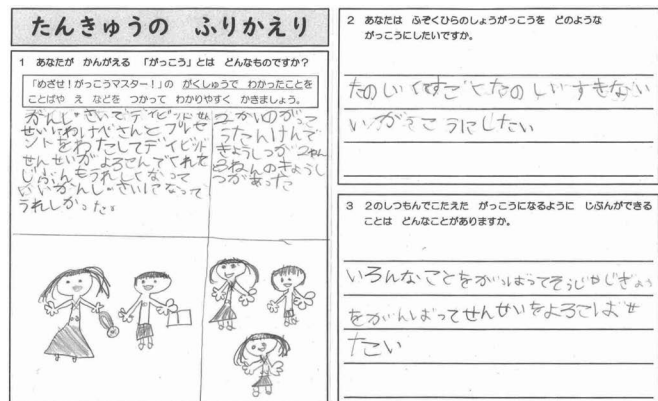 たんきゅうの ふりかえり
1 あなたが かんがえる 「がっこう」とは どんなものですか？
「めざせ！がっこうマスター！」の がくしゅうで わかったことを
ことばや え などを つかって わかりやすく かきましょう。
がんじさいでデイビットせん
せいにわけべさんとプレゼ
ントをわたしてデイビット
せんせいがよろこんでくれた
じぶんもうれしくなって
いいがんじさいになって
うれしかった。
2かいのがっこ
うたんけんで
きょうしつが2ねん
ろねんのきょうし
つがあった
2 あなたは ふぞくひらのしょうがっこうを どのような
がっこうにしたいですか。
たのしくすごくたのしいすきない
いがっこうにしたい
3 2のしつもんでこたえた がっこうになるように じぶんができる
ことは どんなことがありますか。
いろんなことをがんばってそうじやじぎょう
をがんばってせんせいをよろこばせ
たい